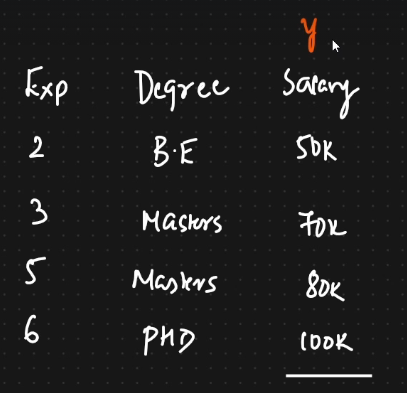 y
Exp Degree Salary
2 B.E 50K
3 Masters 70K
5 Masters 80K
6 PHD 100K